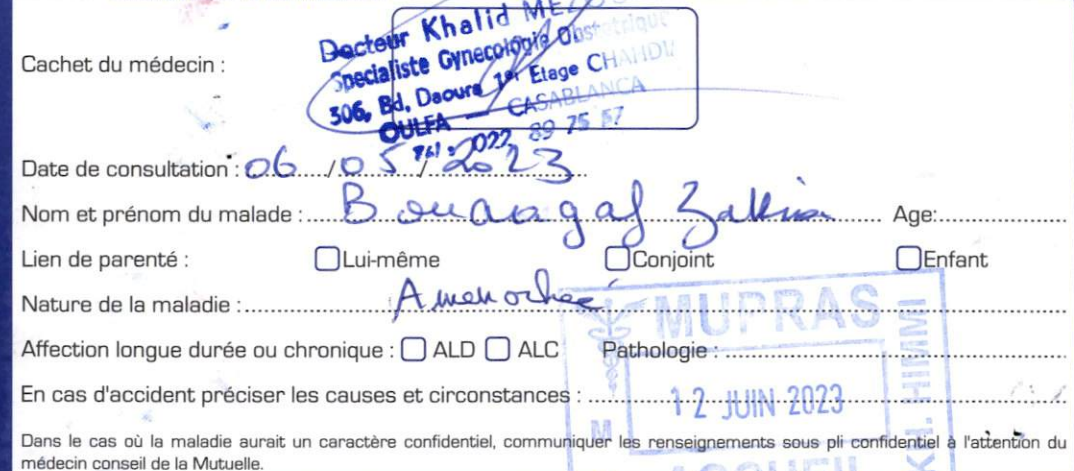 Cachet du médecin :
Docteur Khalid
Specialiste Gynecologie Obstetrique
306, Bd, Daoura 1er Etage CHAHDIA
OULFA — CASABLANCA
Tél : 022 89 75 57
Date de consultation : 06 / 05 / 2023
Nom et prénom du malade : Bouaagaf Zakia Age:
Lien de parenté : Lui-même Conjoint Enfant
Nature de la maladie : Amenorhee
MUPRAS
Affection longue durée ou chronique : ALD ALC Pathologie :
En cas d'accident préciser les causes et circonstances :
12 JUIN 2023
KH. HIMMI
Dans le cas où la maladie aurait un caractère confidentiel, communiquer les renseignements sous pli confidentiel à l'attention du
médecin conseil de la Mutuelle.
M
ACCUEIL